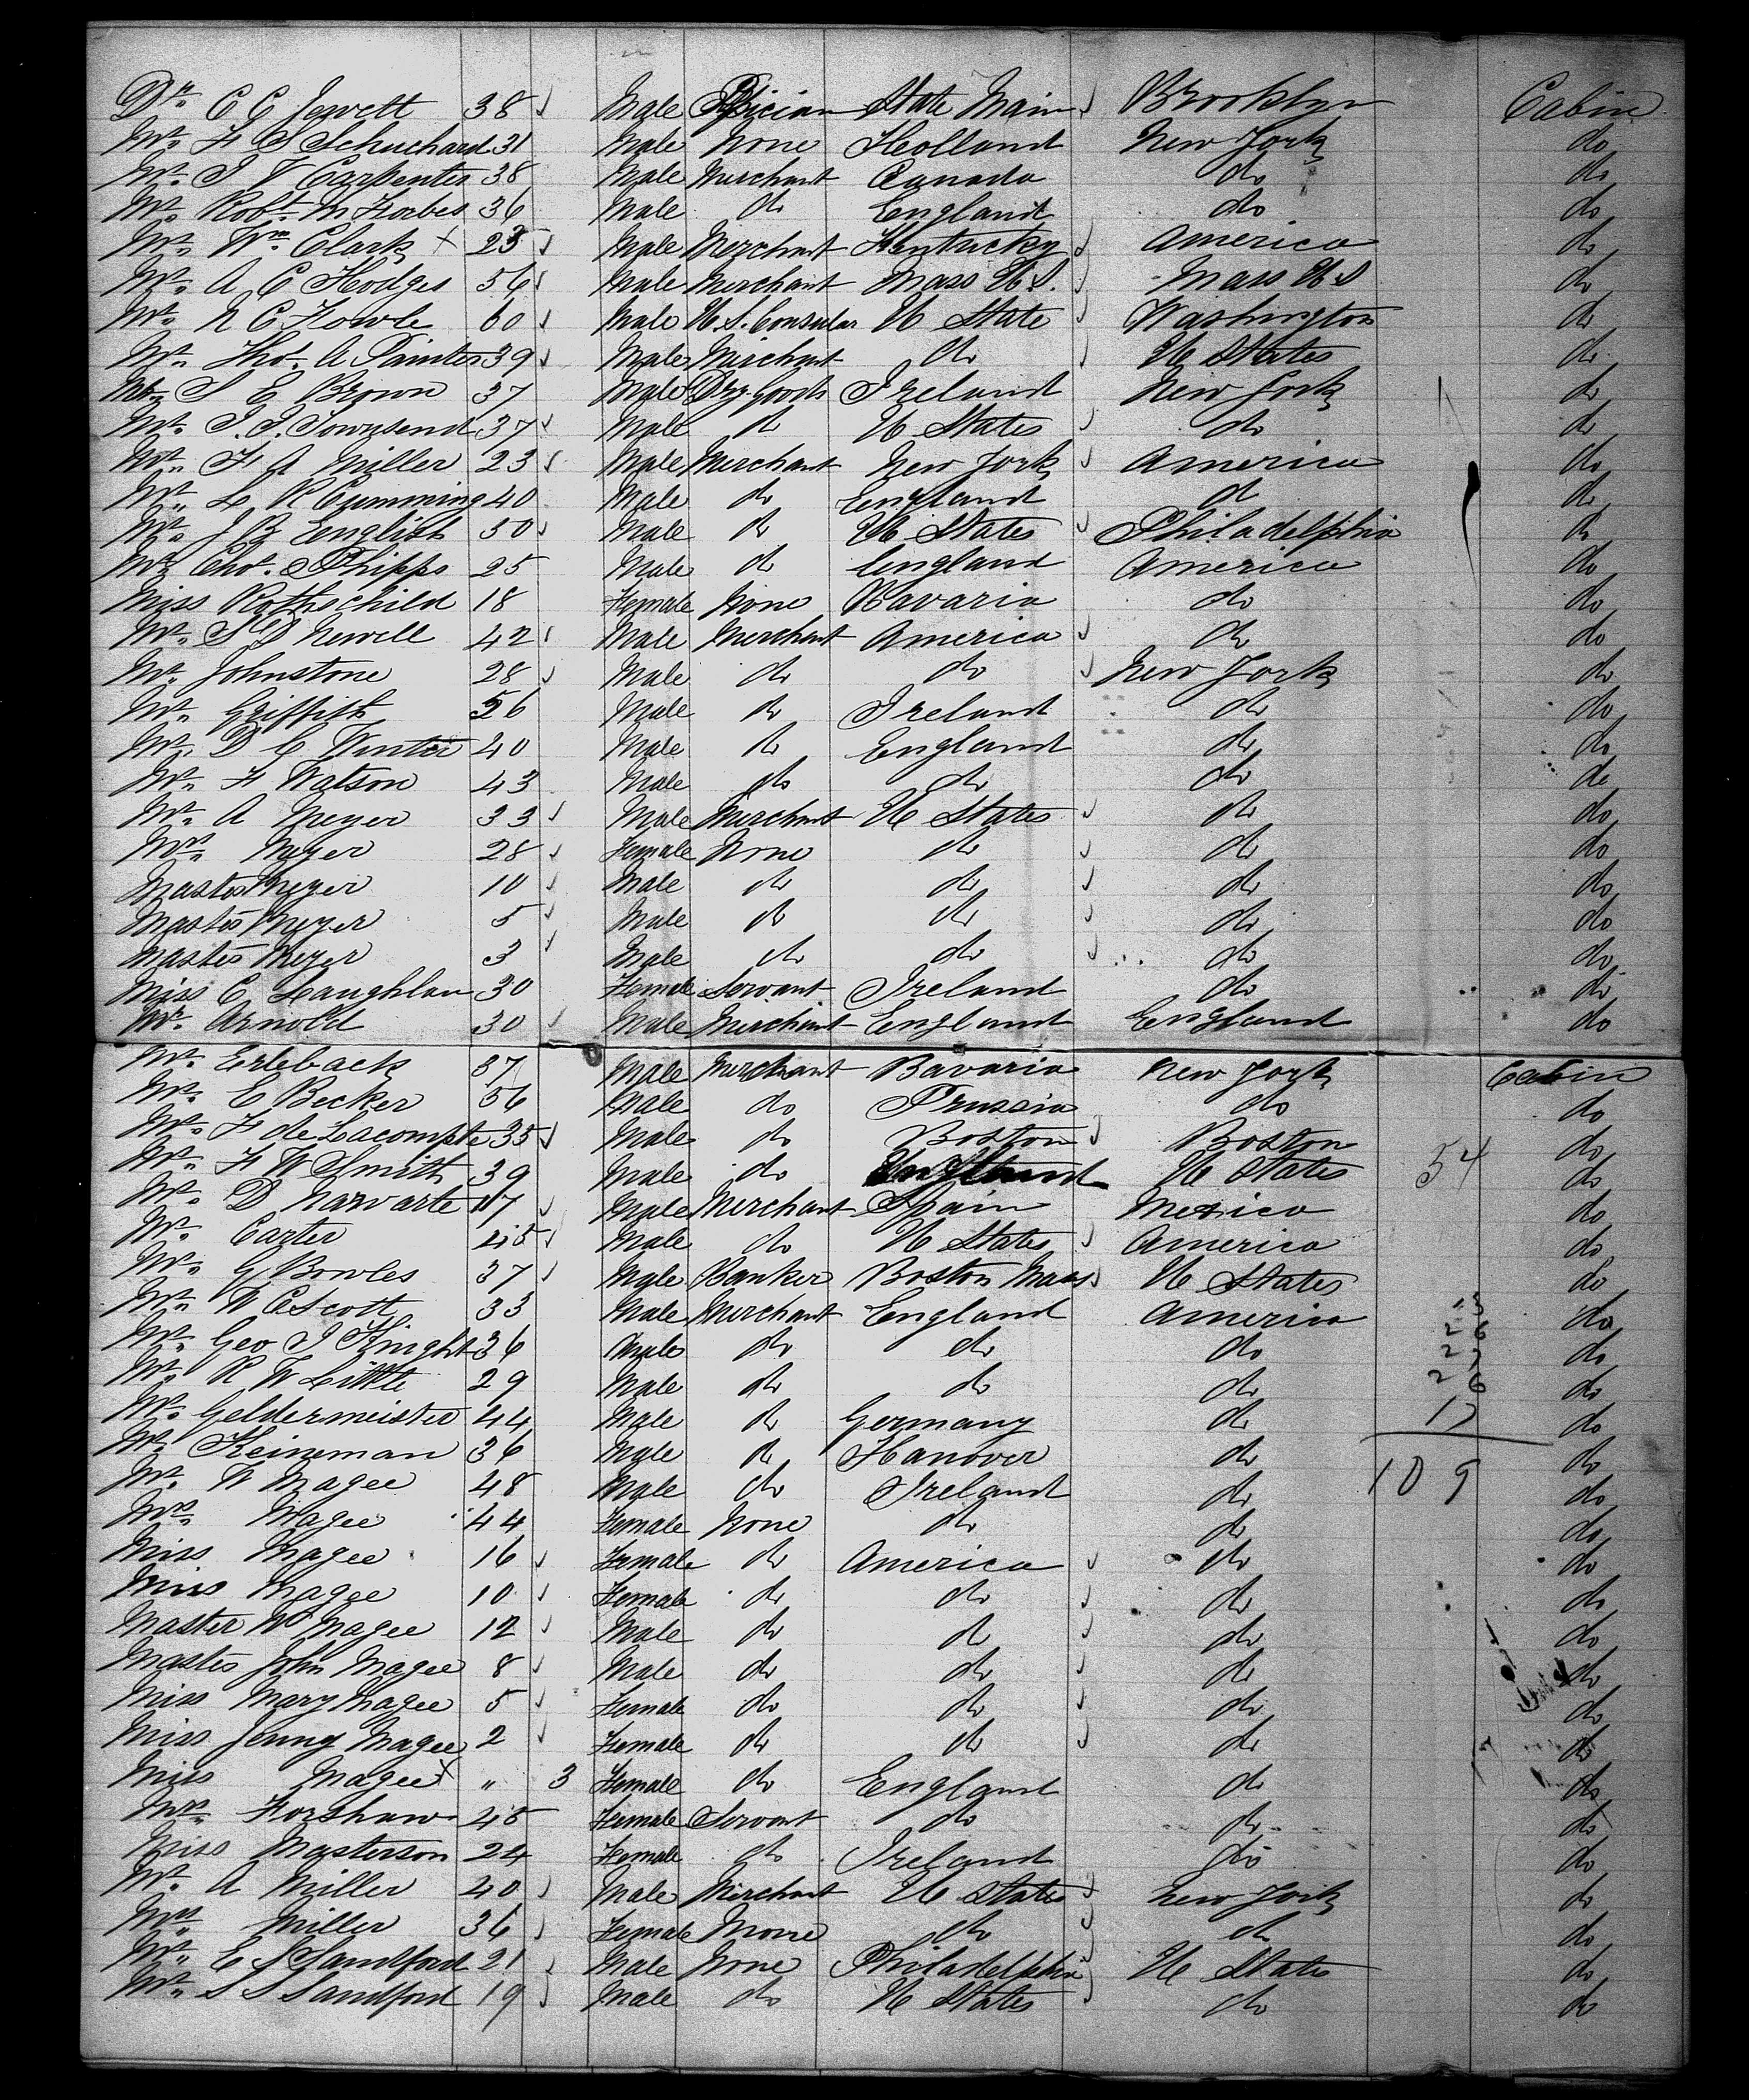 Dr. C C Jewett 38 Male Physician State Main Brooklyn Cabin
Mr. F S Schuchard 31 Male None Holland New York do
Mr. J V Carpenter 38 Male Merchant Canada do do
Mr. Robt. M Forbes 36 Male do England do do
Mr. Wm. Clark X 23 Male Merchant Kentucky America do
Mr. A C Hodges 56 Male Merchant Mass U.S. Mass U S do
Mr. N C Towle 60 Male U.S. Consular U State Washington do
Mr. Thos. A Painter 39 Male Merchant do U States do
Mr. S E Brown 37 Male Dry Goods Ireland New York do
Mr. J. J. Townsend 37 Male do U States do do
Mr. F A Miller 23 Male Merchant New York America do
Mr. L R Cumming 40 Male do England do do
Mr. J B English 50 Male do U States Philadelphia do
Mr. Chs. Phipps 25 Male do England America do
Miss Rothschild 18 Female None Bavaria do do
Mr. S D Newell 42 Male Merchant America do do
Mr. Johnstone 28 Male do do New York do
Mr. Griffith 56 Male do Ireland do do
Mr. D C Winter 40 Male do England do do
Mr. F Watson 43 Male do do do do
Mr. A Meyer 33 Male Merchant U States do do
Mrs. Meyer 28 Female None do do do
Master Meyer 10 Male do do do do
Master Meyer 5 Male do do do do
Master Meyer 3 Male do do do do
Miss C Laughlan 30 Female Servant Ireland do do
Mr. Arnold 30 Male Merchant England England do
Mr. Erleback 37 Male Merchant Bavaria New York Cabin
Mr. E Becker 56 Male do Prussia do do
Mr. F de Lacompte 35 Male do Boston Boston do
Mr. F W Smith 39 Male do U States 54 do
Mr. D Narvarte 17 Male Merchant Spain Mexico do
Mr. Carter 45 Male do U States America do
Mr. G Bowles 37 Male Banker Boston Mass U States do
Mr. W C Scott 33 Male Merchant England America 13 do
Mr. Geo J Knight 36 Male do do do 26 do
Mr. R W Little 29 Male do do do 27 26 do
Mr. Geldermeister 44 Male do Germany do 17 do
Mr. Heineman 36 Male do Hanover do do
Mr. W Magee 48 Male do Ireland do 109 do
Mrs. Magee 44 Female None do do do
Miss Magee 16 Female do America do do
Miss Magee 10 Female do do do do
Master W Magee 12 Male do do do do
Master John Magee 8 Male do do do do
Miss Mary Magee 5 Female do do do do
Miss Jenny Magee 2 Female do do do do
Miss Magee X " 3 Female do England do do
Mrs. Forshaw 45 Female Servant do do do
Miss Masterson 24 Female do Ireland do do
Mr. A Miller 40 Male Merchant U States New York do
Mrs. Miller 36 Female None do do do
Mr. E S Sandford 21 Male None Philadelphia U States do
Mr. S S Sandford 19 Male do U States do do